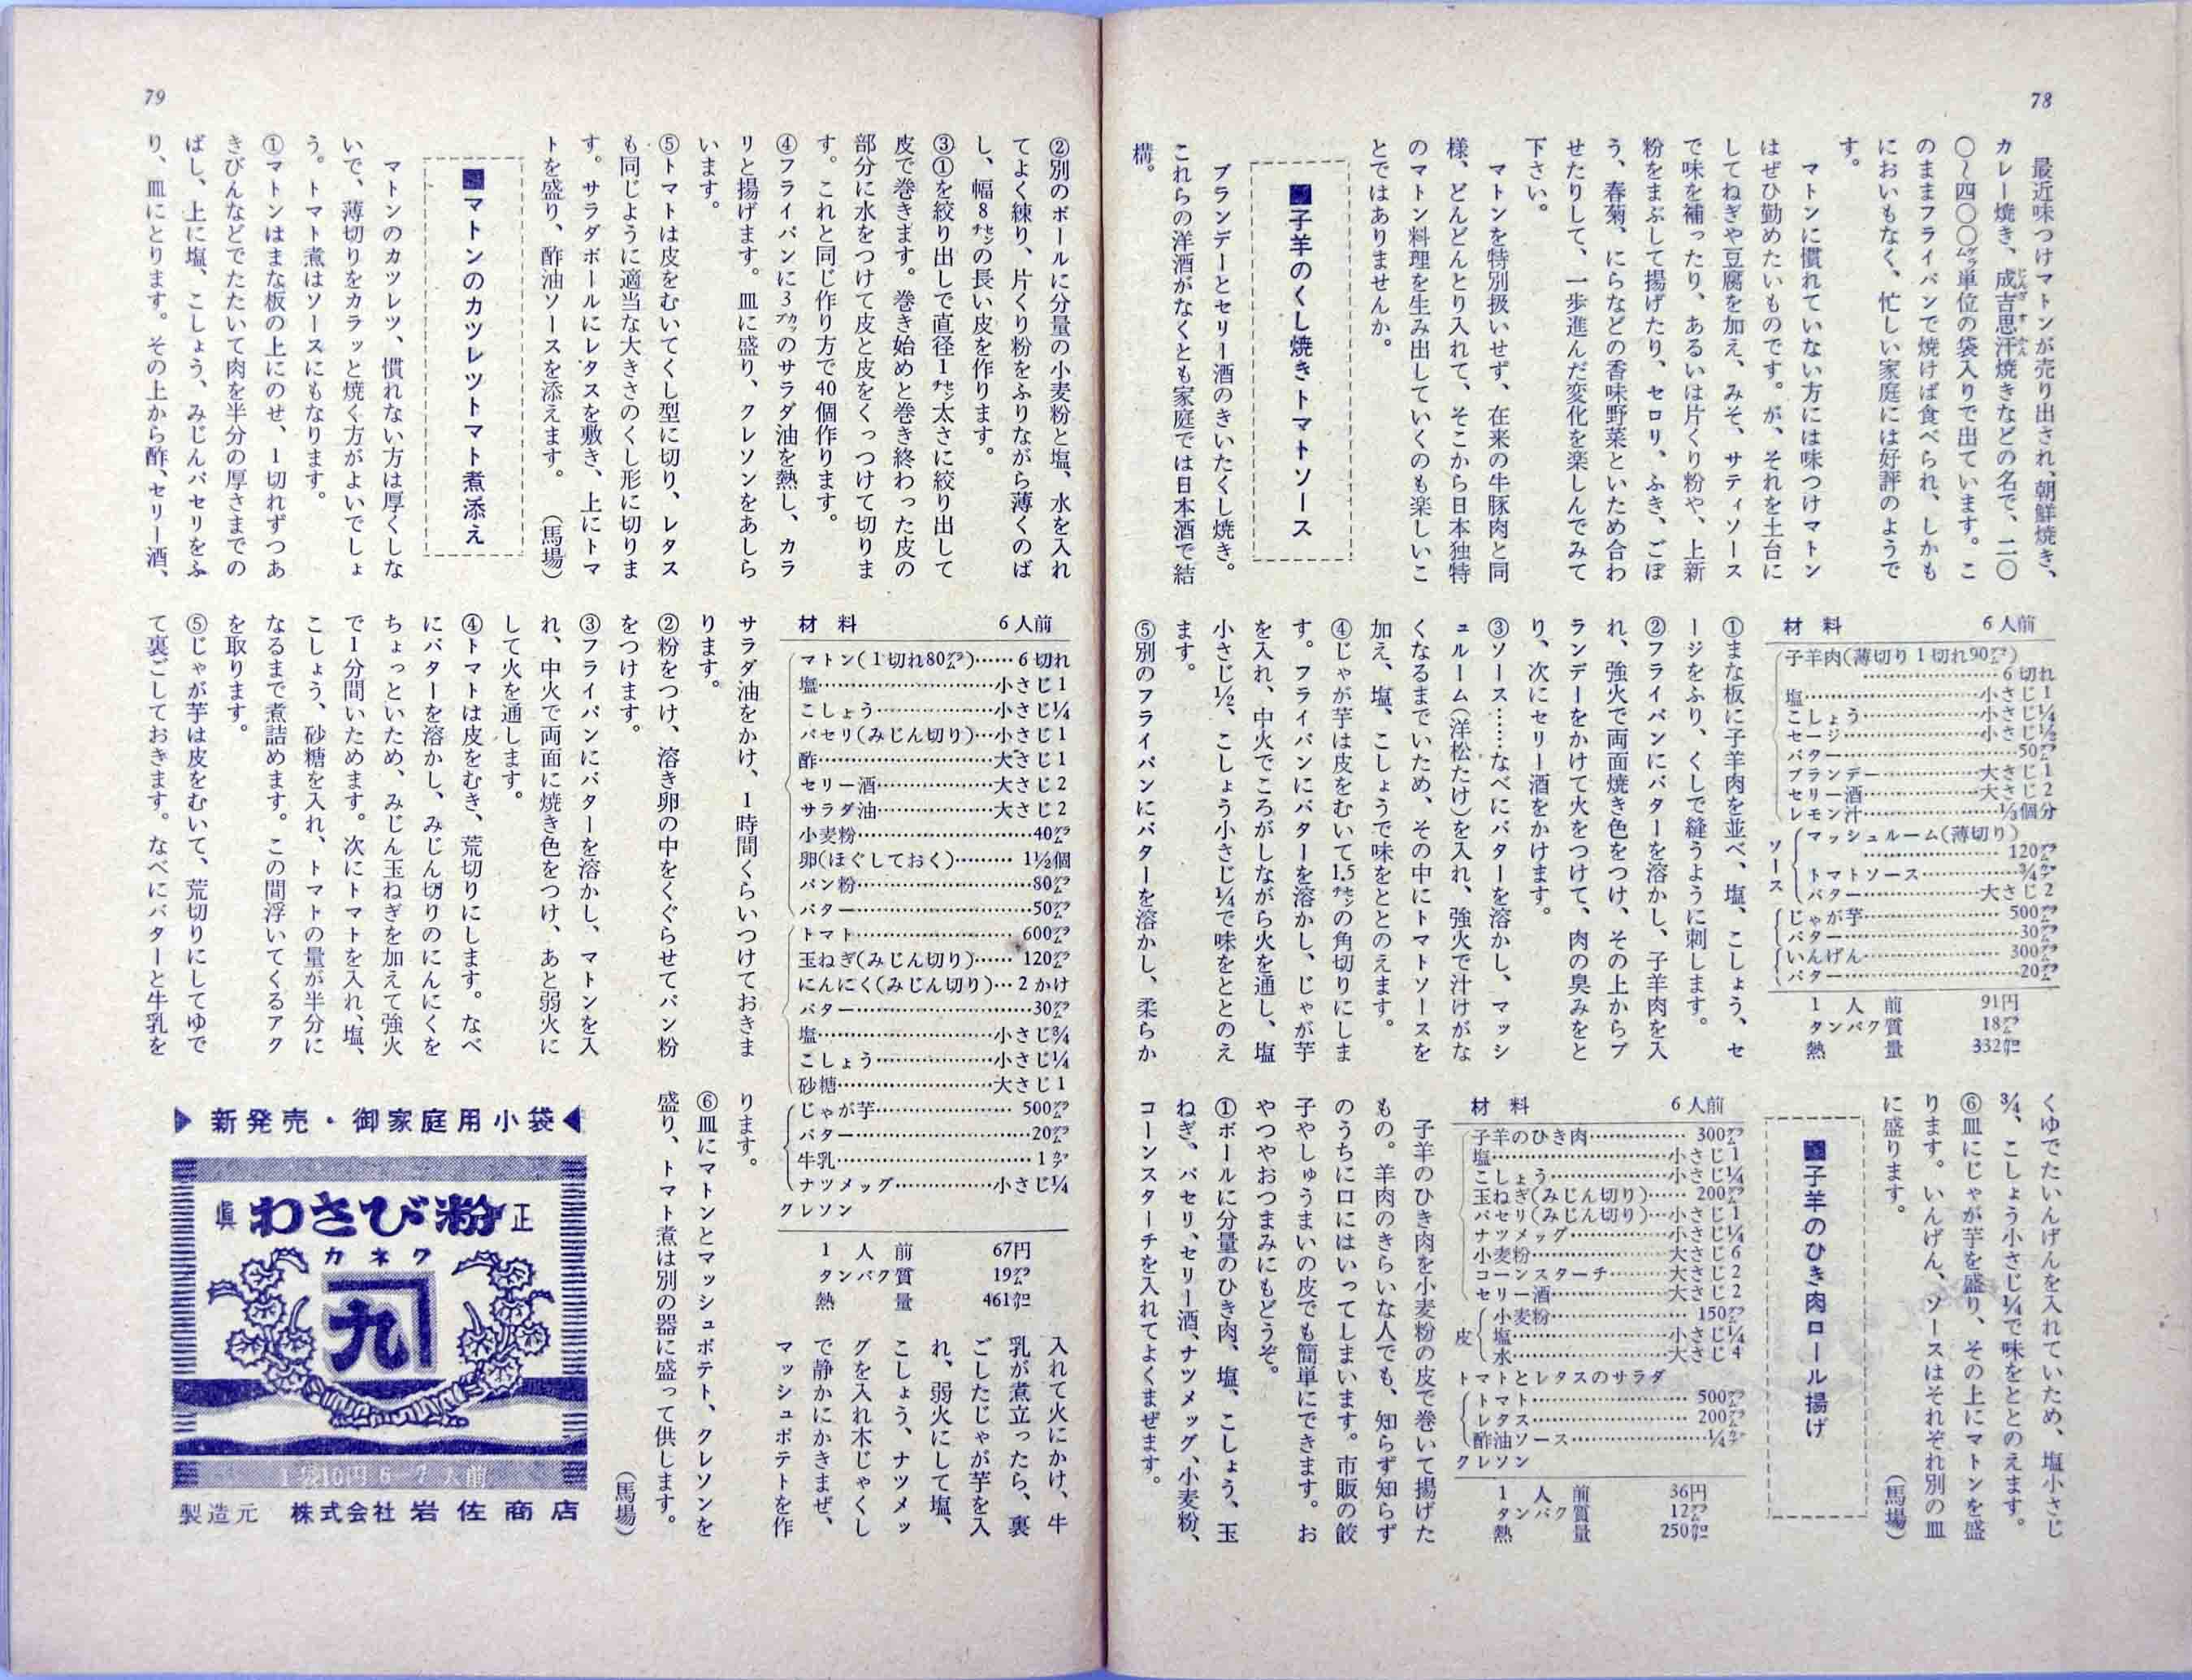 78
最近味つけマトンが売り出され、朝鮮焼き、
カレー焼き、成吉思汗焼きなどの名で、二〇
〇〜四〇〇㌘単位の袋入りで出ています。こ
のままフライパンで焼けば食べられ、しかも
においもなく、忙しい家庭には好評のようで
す。
マトンに慣れていない方には味つけマトン
はぜひ勤めたいものです。が、それを土台に
してねぎや豆腐を加え、みそ、サティソース
で味を補ったり、あるいは片くり粉や、上新
粉をまぶして揚げたり、セロリ、ふき、ごぼ
う、春菊、にらなどの香味野菜といため合わ
せたりして、一歩進んだ変化を楽しんでみて
下さい。
マトンを特別扱いせず、在来の牛豚肉と同
様、どんどんとり入れて、そこから日本独特
のマトン料理を生み出していくのも楽しいこ
とではありませんか。
■子羊のくし焼きトマトソース
ブランデーとセリー酒のきいたくし焼き。
これらの洋酒がなくとも家庭では日本酒で結
構。
材料 6人前
子羊肉(薄切り1切れ90㌘)
……………6切れ
塩……………小さじ1
こしょう……………小さじ¼
セージ……………小さじ½
バター……………50㌘
ブランデー……………大さじ1
セリー酒……………大さじ2
レモン汁……………⅓個分
ソース
マッシュルーム(薄切り)
……………120㌘
トマトソース……………¾㌍
バター……………大さじ2
じゃが芋……………500㌘
バター……………30㌘
いんげん……………300㌘
バター……………20㌘
1人前 91円
タンパク質 18㌘
熱量 332㌍
①まな板に子羊肉を並べ、塩、こしょう、セ
ージをふり、くしで縫うように刺します。
②フライパンにバターを溶かし、子羊肉を入
れ、強火で両面焼き色をつけ、その上からブ
ランデーをかけて火をつけて、肉の臭みをと
り、次にセリー酒をかけます。
③ソース……なべにバターを溶かし、マッシ
ュルーム(洋松たけ)を入れ、強火で汁けがな
くなるまでいため、その中にトマトソースを
加え、塩、こしょうで味をととのえます。
④じゃが芋は皮をむいて1.5㌢の角切りにしま
す。フライパンにバターを溶かし、じゃが芋
を入れ、中火でころがしながら火を通し、塩
小さじ½、こしょう小さじ¼で味をととのえ
ます。
⑤別のフライパンにバターを溶かし、柔らか
くゆでたいんげんを入れていため、塩小さじ
¾、こしょう小さじ¼で味をととのえます。
⑥皿にじゃが芋を盛り、その上にマトンを盛
ります。いんげん、ソースはそれぞれ別の皿
に盛ります。 (馬場)
■子羊のひき肉ロール揚げ
材料 6人前
子羊のひき肉……………300㌘
塩……………小さじ1
こしょう……………小さじ¼
玉ねぎ(みじん切り)……200㌘
パセリ(みじん切り)…小さじ1
ナツメッグ……………小さじ¼
小麦粉……………大さじ6
コーンスターチ………大さじ2
セリー酒……………大さじ2
皮
小麦粉……………150㌘
塩……………小さじ¼
水……………大さじ4
トマトとレタスのサラダ
トマト……………500㌘
レタス……………200㌘
酢油ソース……………¼㌍
クレソン
1人前 36円
タンパク質 12㌘
熱量 250㌍
子羊のひき肉を小麦粉の皮で巻いて揚げた
もの。羊肉のきらいな人でも、知らず知らず
のうちに口にはいってしまいます。市販の餃
子やしゅうまいの皮でも簡単にできます。お
やつやおつまみにもどうぞ。
①ボールに分量のひき肉、塩、こしょう、玉
ねぎ、パセリ、セリー酒、ナツメッグ、小麦粉、
コーンスターチを入れてよくまぜます。
79
②別のボールに分量の小麦粉と塩、水を入れ
てよく練り、片くり粉をふりながら薄くのば
し、幅8㌢の長い皮を作ります。
③①を絞り出しで直径1㌢太さに絞り出して
皮で巻きます。巻き始めと巻き終わった皮の
部分に水をつけて皮と皮をくっつけて切りま
す。これと同じ作り方で40個作ります。
④フライパンに3㌍のサラダ油を熱し、カラ
リと揚げます。皿に盛り、クレソンをあしら
います。
⑤トマトは皮をむいてくし型に切り、レタス
も同じように適当な大きさのくし形に切りま
す。サラダボールにレタスを敷き、上にトマ
トを盛り、酢油ソースを添えます。 (馬場)
■マトンのカツレツトマト煮添え
マトンのカツレツ、慣れない方は厚くしな
いで、薄切りをカラッと焼く方がよいでしょ
う。トマト煮はソースにもなります。
①マトンはまな板の上にのせ、1切れずつあ
きびんなどでたたいて肉を半分の厚さまでの
ばし、上に塩、こしょう、みじんパセリをふ
り、皿にとります。その上から酢、セリー酒、
材料 6人前
マトン(1切れ80㌘)……6切れ
塩……………小さじ1
こしょう……………小さじ¼
パセリ(みじん切り)…小さじ1
酢……………大さじ1
セリー酒……………大さじ2
サラダ油……………大さじ2
小麦粉……………40㌘
卵(ほぐしておく)………1½個
パン粉……………80㌘
バター……………50㌘
トマト……………600㌘
玉ねぎ(みじん切り)……120㌘
にんにく(みじん切り)…2かけ
バター……………30㌘
塩……………小さじ¾
こしょう……………小さじ¼
砂糖……………大さじ1
じゃが芋……………500㌘
バター……………20㌘
牛乳……………1㌍
ナツメッグ……………小さじ¼
クレソン
1人前 67円
タンパク質 19㌘
熱量 461㌍
サラダ油をかけ、1時間くらいつけておきま
ります。
②粉をつけ、溶き卵の中をくぐらせてパン粉
をつけます。
③フライパンにバターを溶かし、マトンを入
れ、中火で両面に焼き色をつけ、あと弱火に
して火を通します。
④トマトは皮をむき、荒切りにします。なべ
にバターを溶かし、みじん切りのにんにくを
ちょっといため、みじん玉ねぎを加えて強火
で1分間いためます。次にトマトを入れ、塩、
こしょう、砂糖を入れ、トマトの量が半分に
なるまで煮詰めます。この間浮いてくるアク
を取ります。
⑤じゃが芋は皮をむいて、荒切りにしてゆで
て裏ごしておきます。なべにバターと牛乳を
入れて火にかけ、牛
乳が煮立ったら、裏
ごしたじゃが芋を入
れ、弱火にして塩、
こしょう、ナツメッ
グを入れ木じゃくし
で静かにかきまぜ、
マッシュポテトを作
ります。
⑥皿にマトンとマッシュポテト、クレソンを
盛り、トマト煮は別の器に盛って供します。
(馬場)
新発売・御家庭用小袋
眞 わさび粉 正
カネク
九
1袋10円 6-7人前
製造元 株式会社 岩佐商店